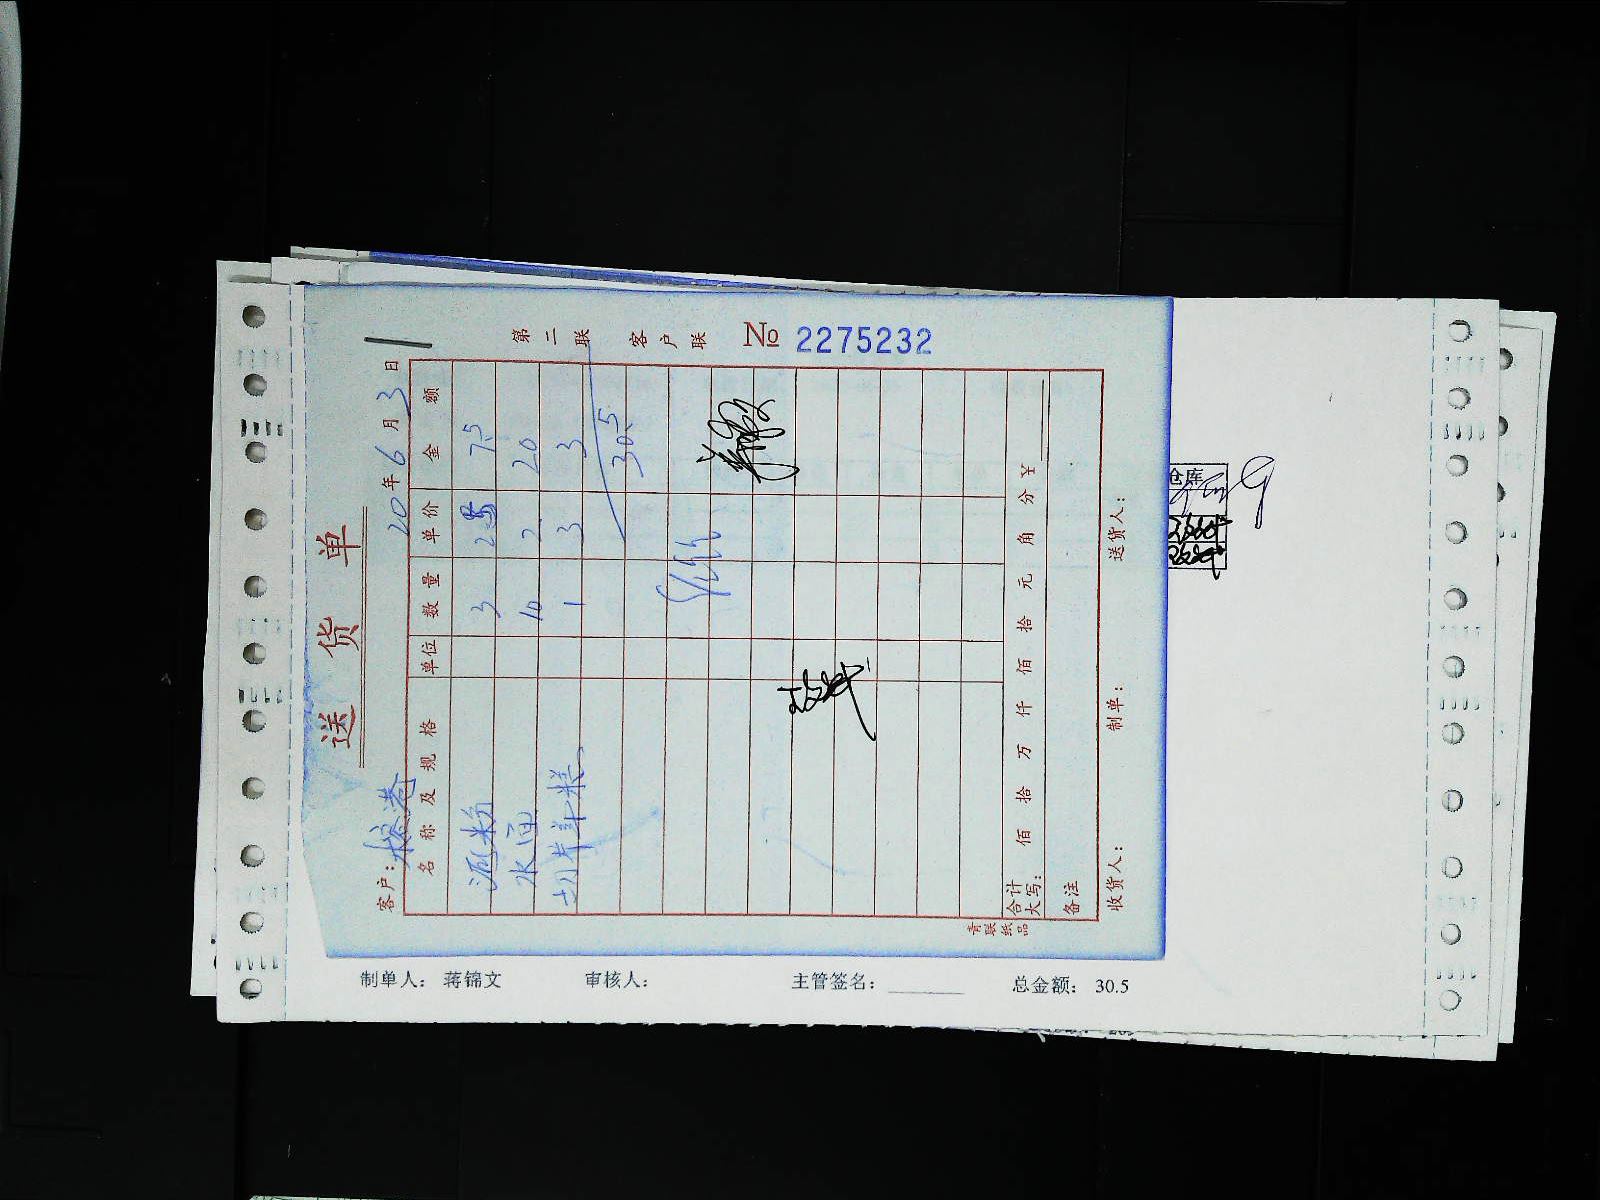 送 货 单
第二联 客户联
№ 2275232
客户：榕港
20年6月3日
名称及规格 单位 数量 单价 金额
河粉 3 2.5 7.5
水面 10 2 20
切片年糕 1 3 3
30.5
合计大写： 佰 拾 万 仟 佰 拾 元 角 分 ¥
备注
收货人： 制单： 送货人：
青联纸品
仓库
制单人： 蒋锦文 审核人： 主管签名： 总金额： 30.5